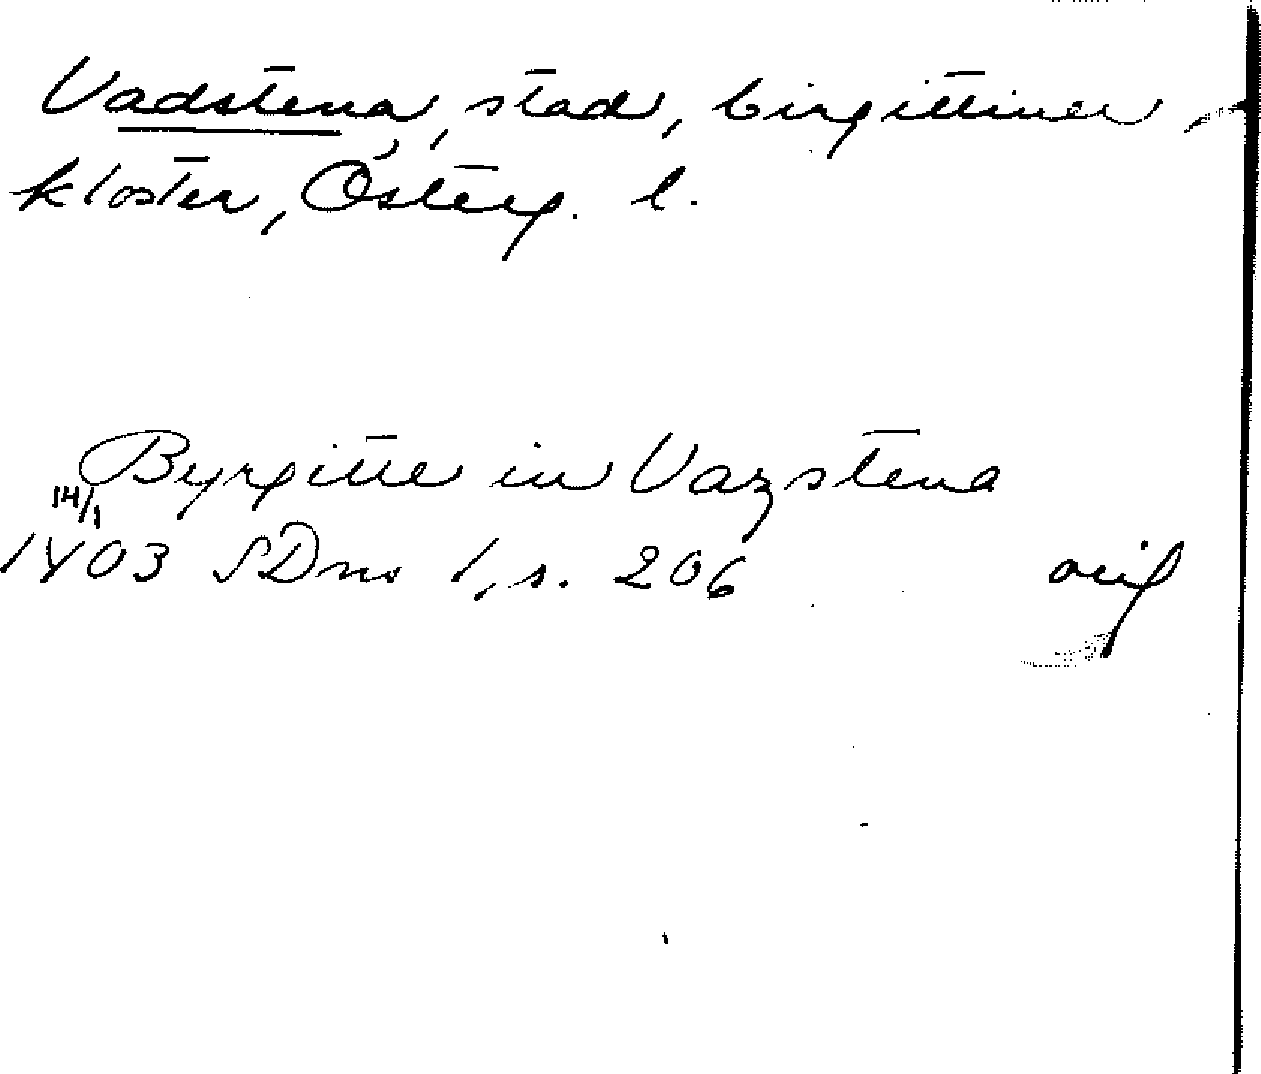 Vadstena, stad, birgittiner-
kloster, Österg. l.
Byrgitte in Vazstena
14/1
1403 SDns 1, s. 206 orig